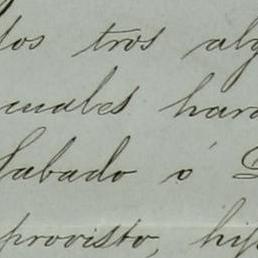 los tros alg
cuales hara
Sabado ó D
provisto, hi